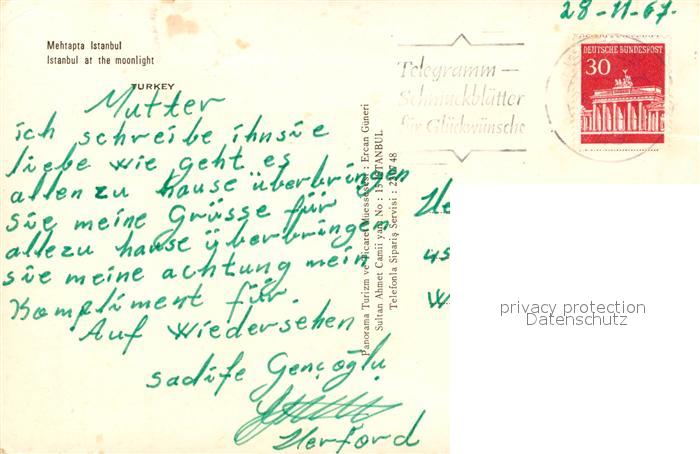 28-11-67.
Mehtapta Istanbul
Istanbul at the moonlight
TURKEY
Telegramm-
Schmuckblätter
für Glückwünsche
DEUTSCHE BUNDESPOST
30
Mutter
ich schreibe ihnsie
liebe wie geht es
allen zu hause überbringen
sie meine Grüsse für
allezu hause überbringen
sie meine achtung mein
Kompliment für.
Auf Wiedersehen
sadife Gençoğlu
Herford
Panorama Turizm ve Ticaret Müessesesi : Ercan Güneri
Sultan Ahmet Camii yanı No : 15 İSTANBUL
Telefonla Sipariş Servisi : 22
48
privacy protection
Datenschutz